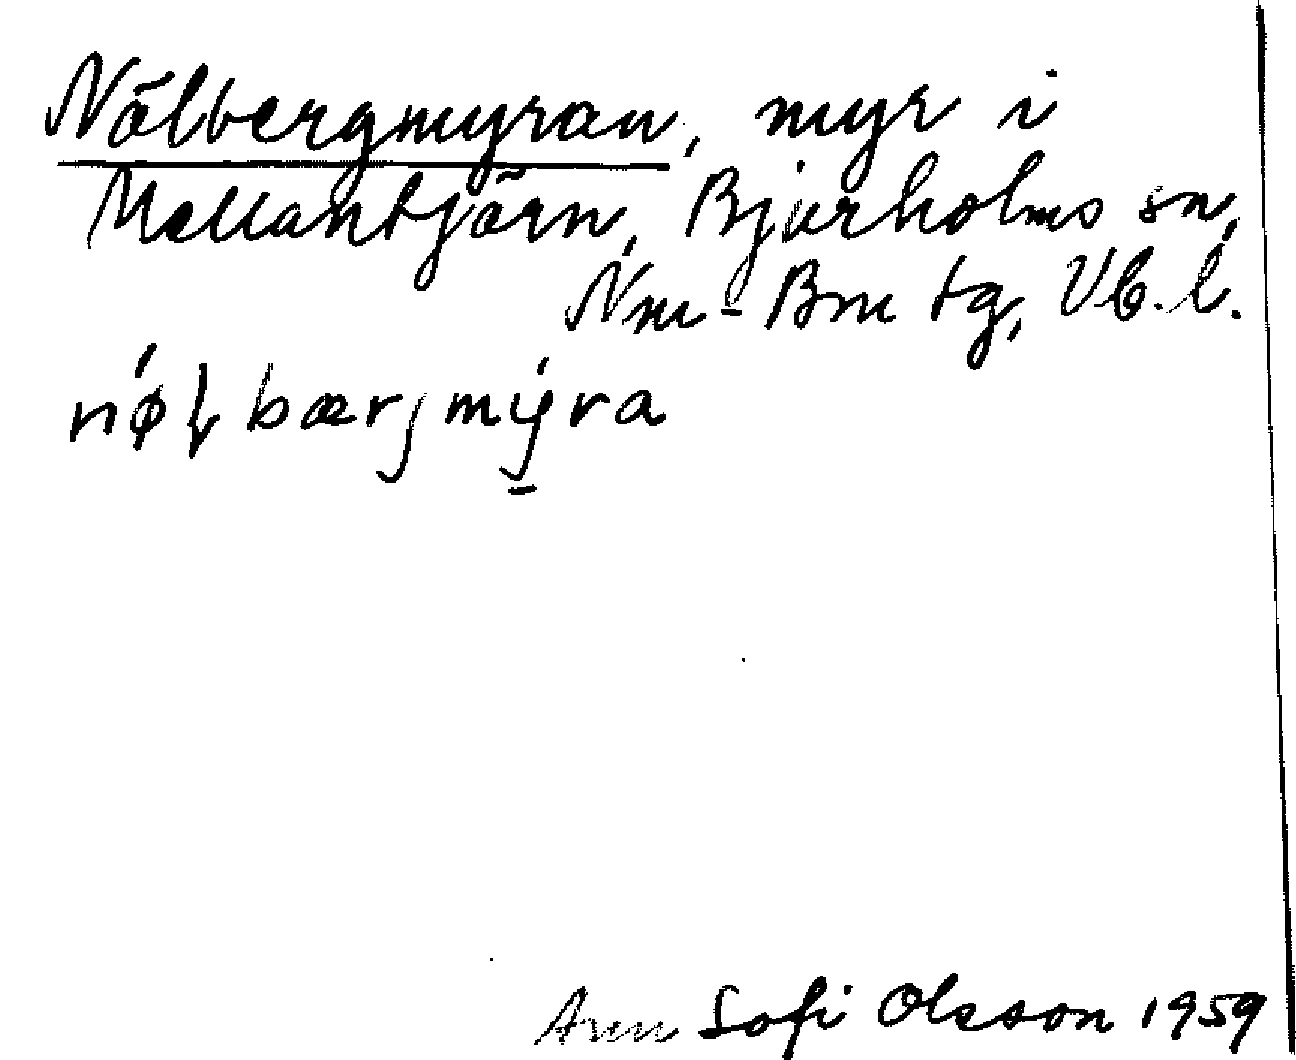 Nölbergmyran, myr i
Mellantjörn, Bjurholms sn,
Nm-Bm tg, Vb.l.
nø̀ɫbærjmỳra
Ann Sofi Olsson 1959